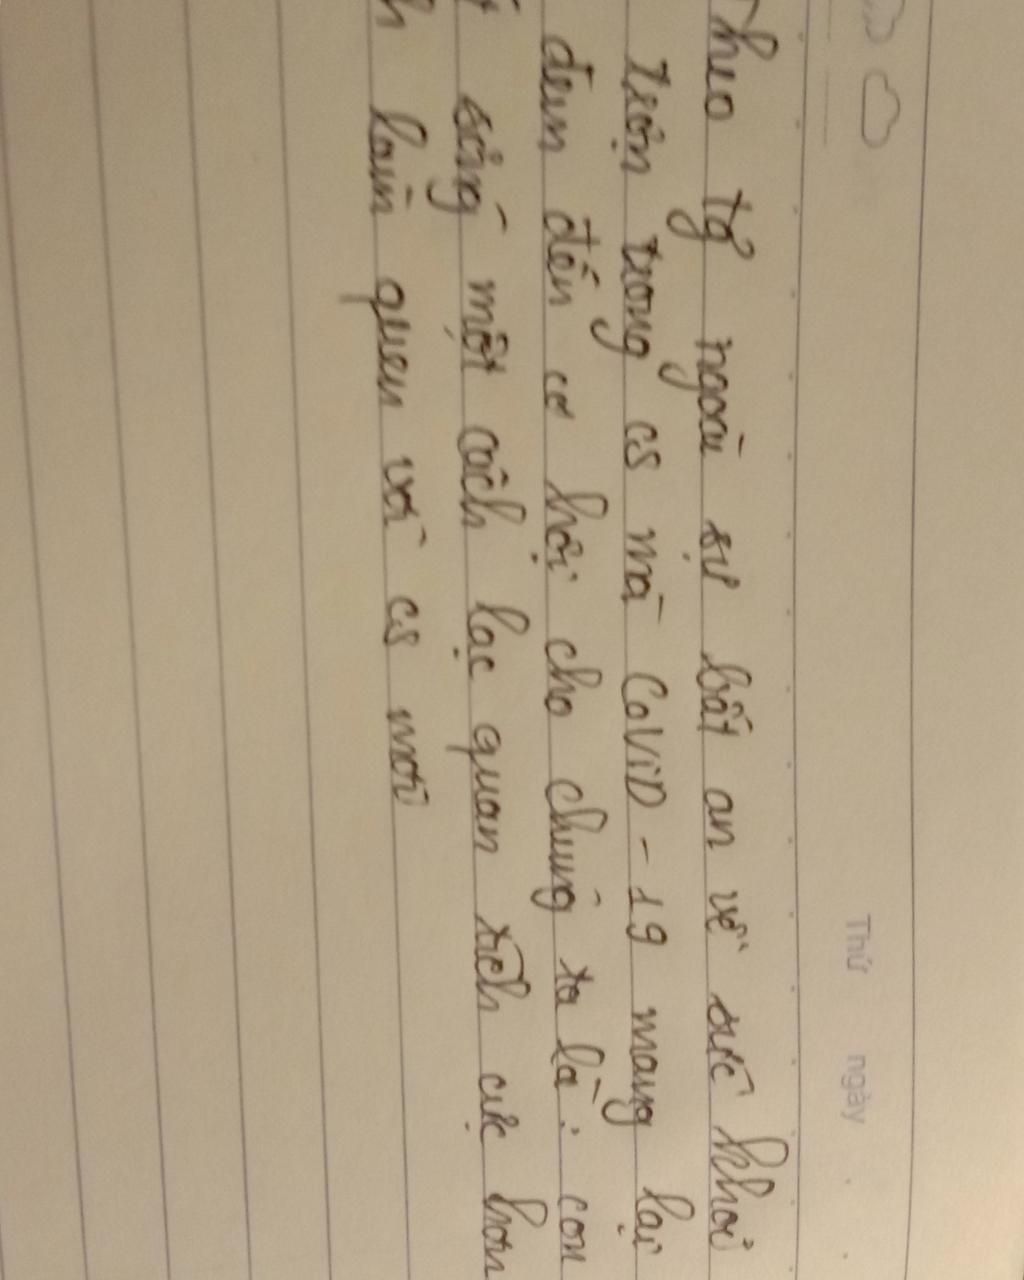 Thứ ngày
Theo tg ngoài sự bất an về sức khoẻ
trộn trong cs mà CoViD-19 mang lại
đem đến cơ hội cho chúng ta là: con
sống một cách lạc quan tích cực hơn
làm quen với cs mới